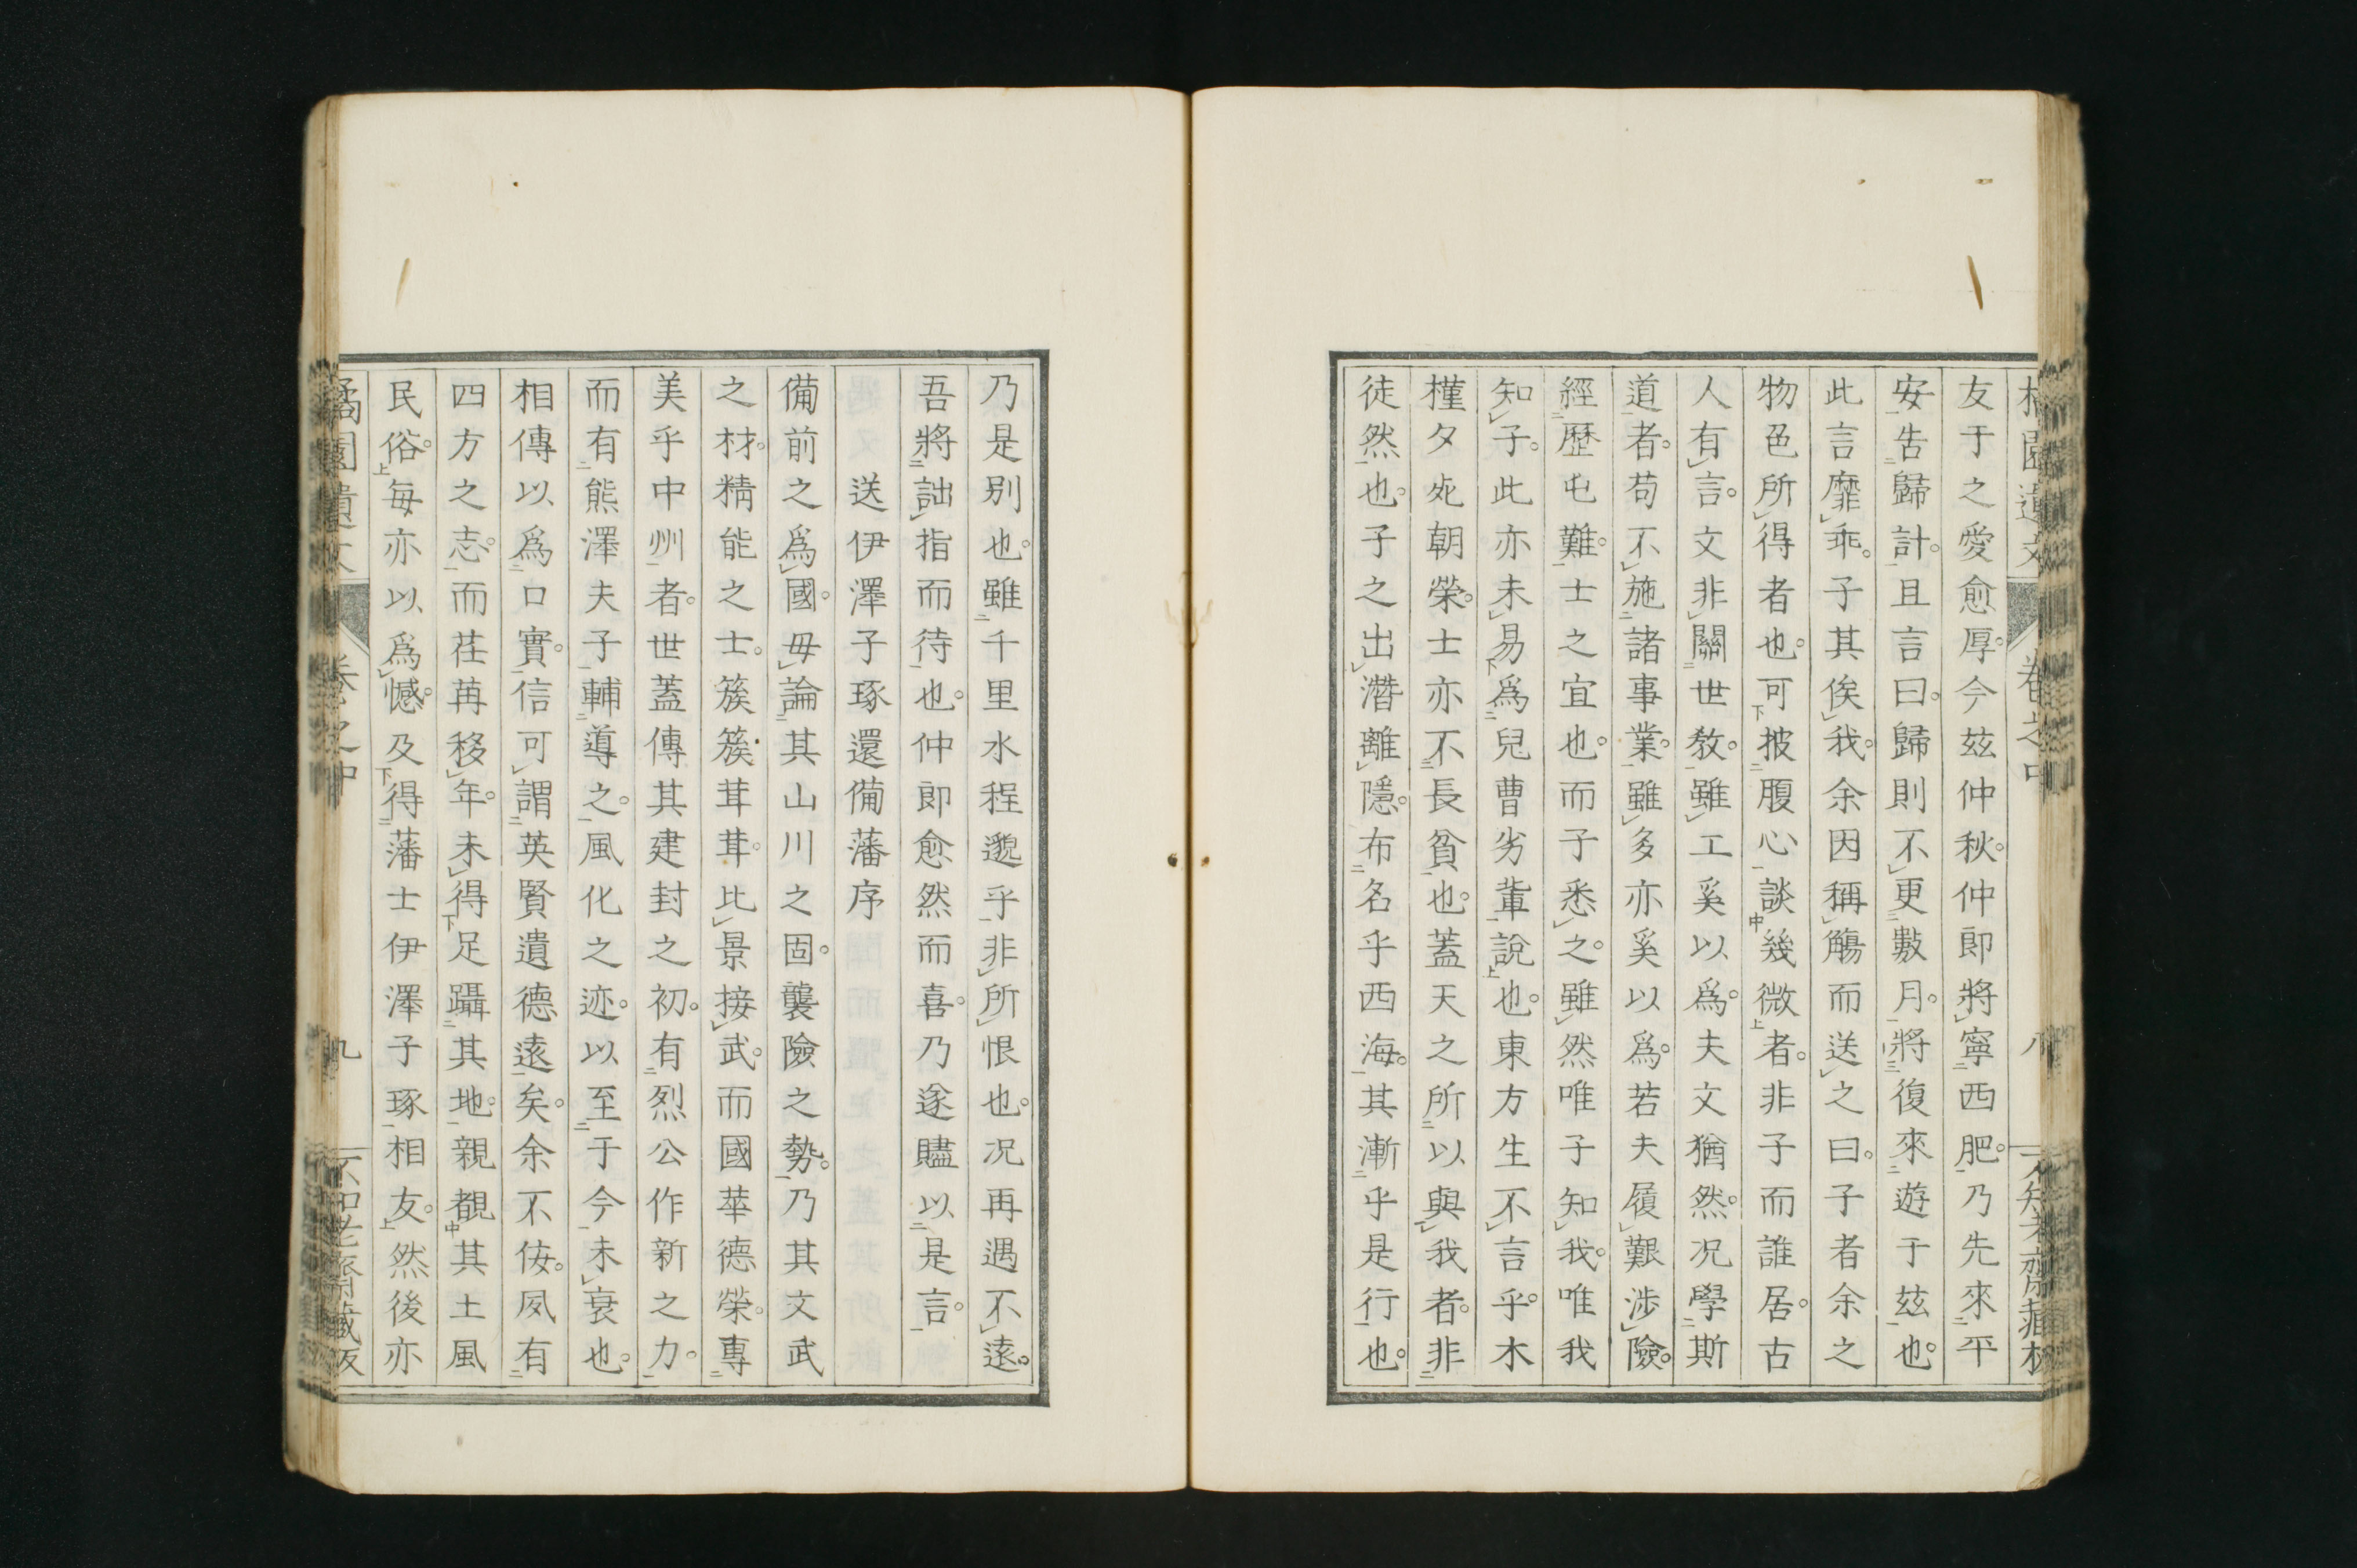 友于之愛愈厚。今玆仲秋。仲郎將寧西肥。乃先來平
安告歸計。且言曰。歸則不更數月。將復來遊于玆也。
此言靡乖。子其俟我。余因稱觴而送之曰。子者余之
物色所得者也。可披腹心談幾微者。非子而誰居。古
人有言。文非關世教。雖工奚以爲。夫文猶然。况學斯
道者。苟不施諸事業。雖多亦奚以爲。若夫履艱涉險。
經歷屯難。士之宜也。而子悉之。雖然唯子知我。唯我
知子。此亦未易爲兒曹劣輩說也。東方生不言乎。木
槿夕死朝榮。士亦不長貧也。蓋天之所以與我者。非
徒然也。子之出潛離隱。布名乎西海。其漸乎是行也。
乃是別也。雖千里水程邈乎非所恨也。况再遇不遠。
吾將詘指而待也。仲郎愈然而喜。乃遂贐以是言。
送伊澤子琢還備藩序
備前之爲國。毋論其山川之固。襲險之勢。乃其文武
之材。精能之士。簇簇茸茸。比景接武。而國華德榮。專
美乎中州者。世蓋傳其建封之初。有烈公作新之力。
而有熊澤夫子輔導之。風化之迹。以至于今未衰也。
相傳以爲口實。信可謂英賢遺德遠矣。余不佞。夙有
四方之志。而荏苒移年。未得足躡其地。親覩其土風
民俗。每亦以爲憾。及得藩士伊澤子琢相友。然後亦
卷之中
九